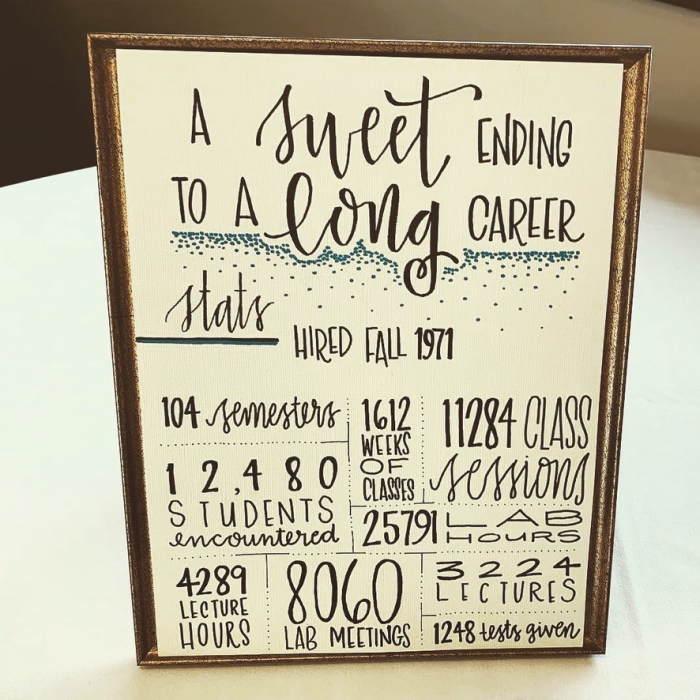 A sweet ENDING
TO A long CAREER
stats
HIRED FALL 1971
104 semesters
1612
WEEKS
OF
CLASSES
11284 CLASS
sessions
12,480
STUDENTS
encountered
25791 LAB
HOURS
4289
LECTURE
HOURS
8060
LAB MEETINGS
3224
LECTURES
1248 tests given